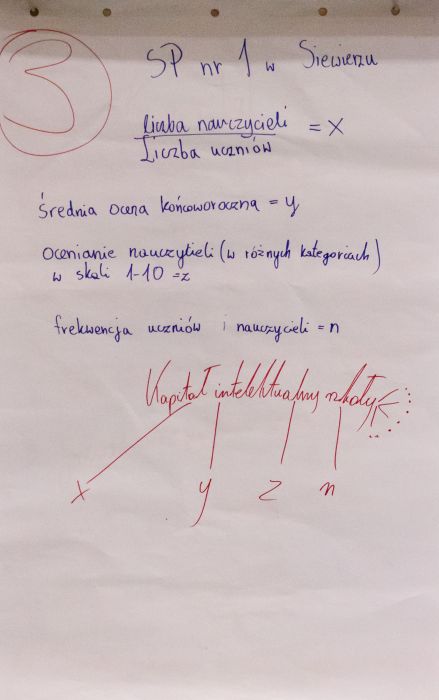 3
SP nr 1 w Siewierzu
Liczba nauczycieli
Liczba uczniów
= x
Średnia ocena końcoworoczna = y
Ocenianie nauczycieli (w różnych kategoriach)
w skali 1-10 = z
frekwencja uczniów i nauczycieli = n
Kapitał intelektualny szkoły
x y z n